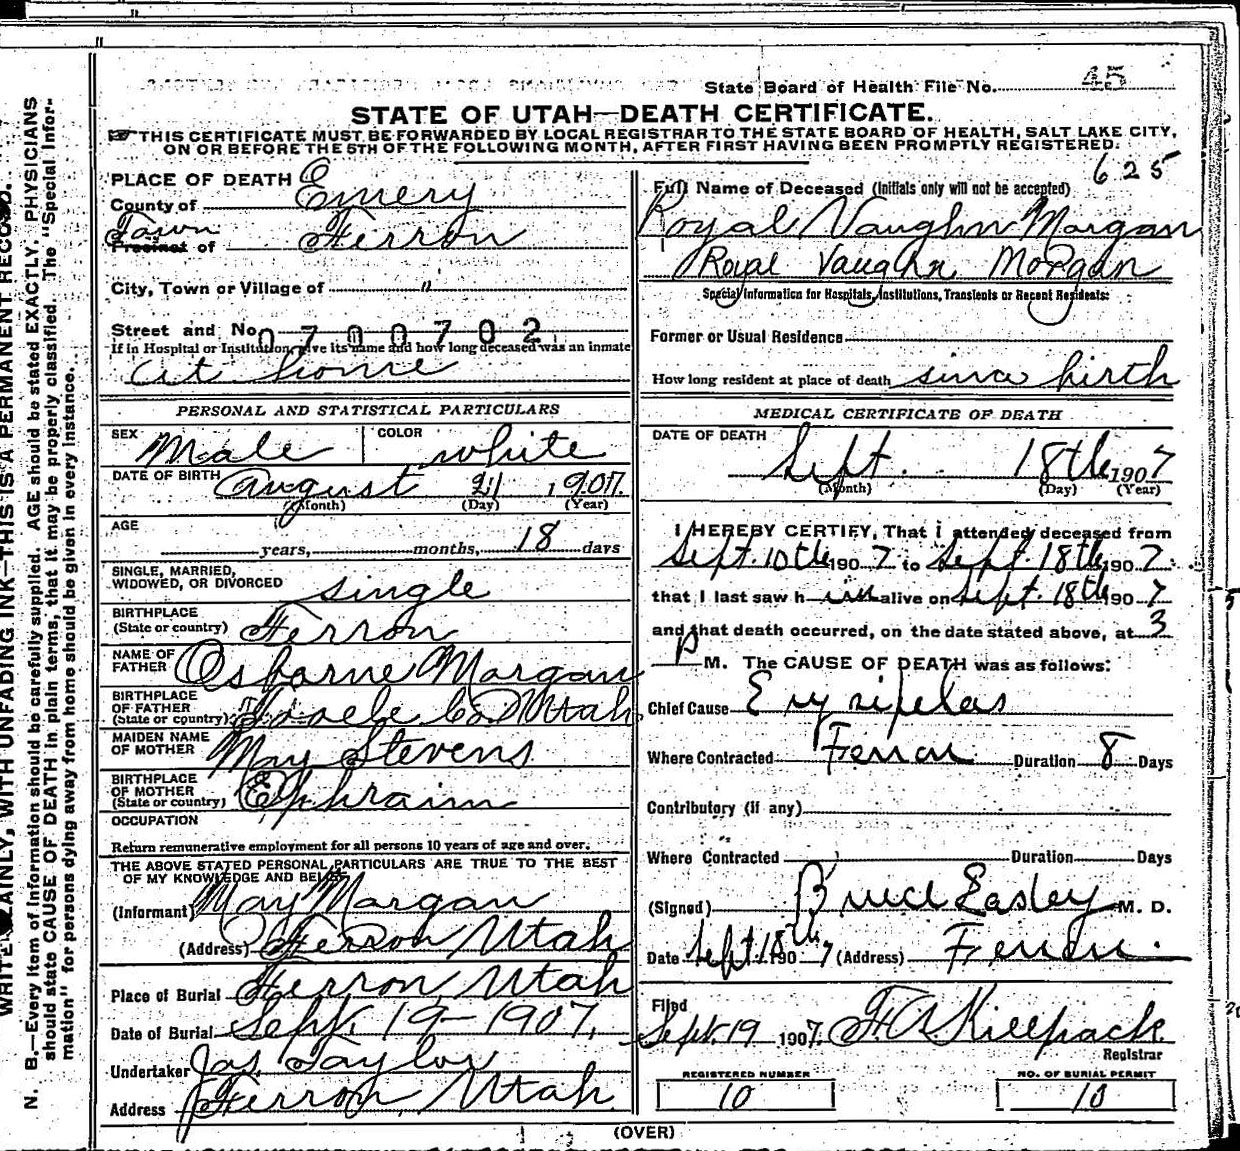 State Board of Health File No. 45
STATE OF UTAH—DEATH CERTIFICATE.
THIS CERTIFICATE MUST BE FORWARDED BY LOCAL REGISTRAR TO THE STATE BOARD OF HEALTH, SALT LAKE CITY,
ON OR BEFORE THE 5TH OF THE FOLLOWING MONTH, AFTER FIRST HAVING BEEN PROMPTLY REGISTERED.
625
PLACE OF DEATH
County of Emery
Town
Precinct of Ferron
City, Town or Village of "
Street and No.
0700702
If in Hospital or Institution, give its name and how long deceased was an inmate
at home
Full Name of Deceased (Initials only will not be accepted)
Royal Vaughn Morgan
Royal Vaughn Morgan
Special Information for Hospitals, Institutions, Transients or Recent Residents:
Former or Usual Residence
How long resident at place of death since birth
PERSONAL AND STATISTICAL PARTICULARS
SEX Male COLOR white
DATE OF BIRTH August 21, 1907.
(Month) (Day) (Year)
AGE
years, months, 18 days
SINGLE, MARRIED,
WIDOWED, OR DIVORCED single
BIRTHPLACE
(State or country) Ferron
NAME OF
FATHER Osborne Morgan
BIRTHPLACE
OF FATHER
(State or country) Tooele Co Utah
MAIDEN NAME
OF MOTHER May Stevens
BIRTHPLACE
OF MOTHER
(State or country) Ephraim
OCCUPATION
Return remunerative employment for all persons 10 years of age and over.
THE ABOVE STATED PERSONAL PARTICULARS ARE TRUE TO THE BEST
OF MY KNOWLEDGE AND BELIEF
(Informant) May Morgan
(Address) Ferron Utah
Place of Burial Ferron Utah
Date of Burial Sept. 19—1907.
Undertaker Jas. Taylor
Address Ferron, Utah.
MEDICAL CERTIFICATE OF DEATH
DATE OF DEATH
Sept. 18th 1907
(Month) (Day) (Year)
I HEREBY CERTIFY, That i attended deceased from
Sept. 10th 1907 to Sept. 18th 1907.
that I last saw him alive on Sept. 18th 1907
and that death occurred, on the date stated above, at 3
P M. The CAUSE OF DEATH was as follows:
Chief Cause Erysipelas
Where Contracted Ferron Duration 8 Days
Contributory (if any)
Where Contracted Duration Days
(Signed) Bruce Easley M. D.
Date Sept. 18th 1907 (Address) Ferron.
Filed
Sept. 19 1907. F. A. Killpack
Registrar
REGISTERED NUMBER
10
NO. OF BURIAL PERMIT
10
(OVER)
WRITE PLAINLY, WITH UNFADING INK—THIS IS A PERMANENT RECORD.
N. B.—Every item of information should be carefully supplied. AGE should be stated EXACTLY. PHYSICIANS
should state CAUSE OF DEATH in plain terms, that it may be properly classified. The "Special Infor-
mation" for persons dying away from home should be given in every instance.